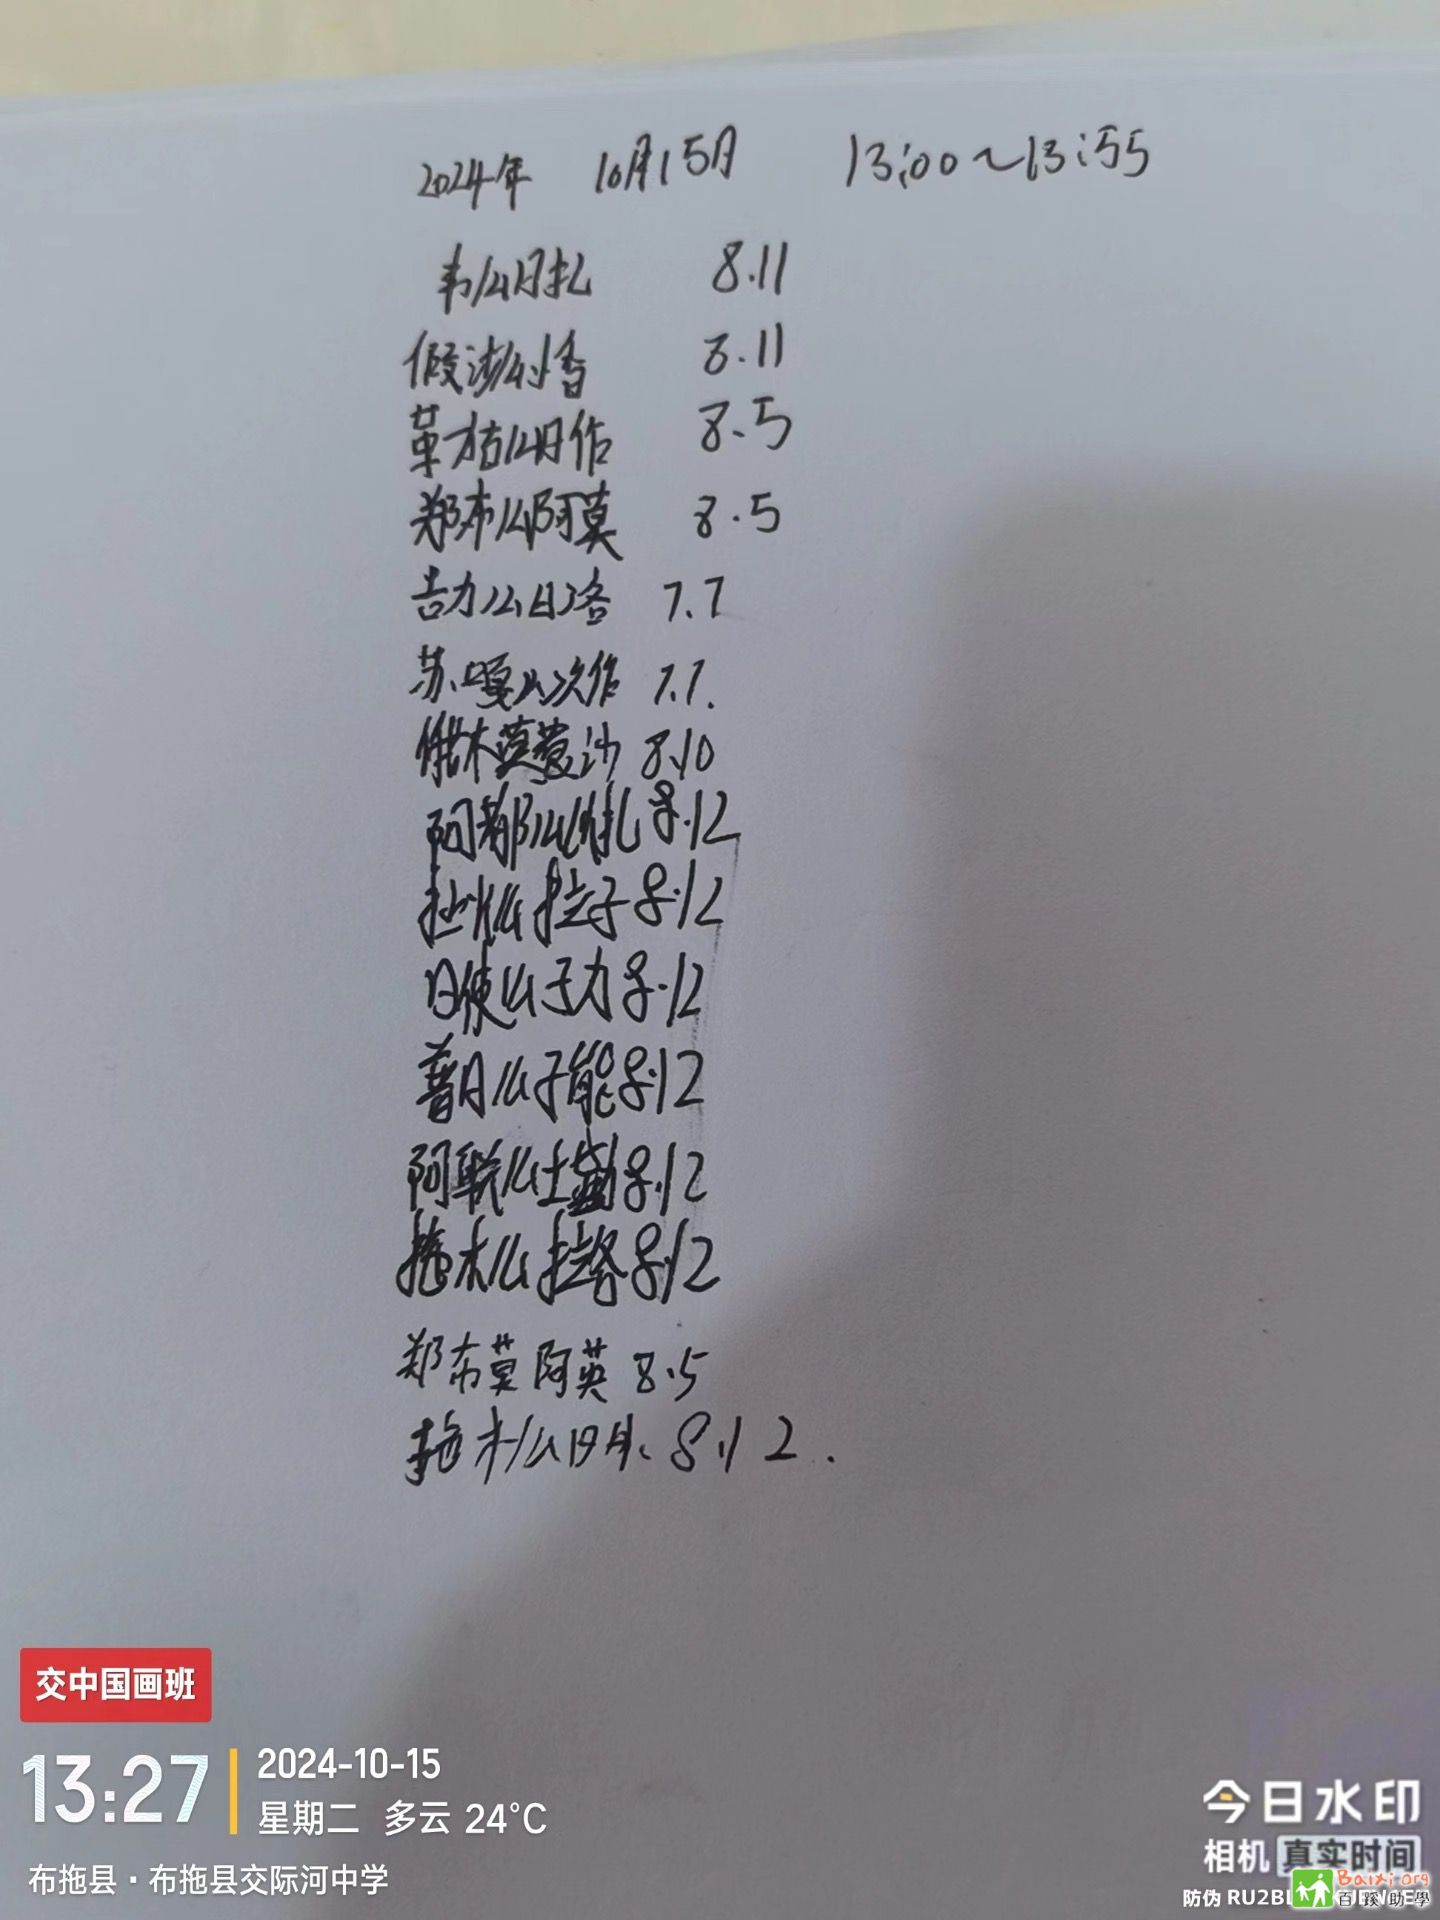 2024年 10月15月 13:00~13:55
韦么日扎 8.11
假涉么小香 8.11
革枯么日作 8.5
郑布么阿莫 8.5
吉力么日洛 7.7
苏嘎么次作 7.7.
俄木莫惹沙 8.10
阿都么 扎 8.12
么拉子 8.12
日使么子力 8.12
普月么子能 8.12
阿联么土 8.12
拖木么拉各 8.12
郑布莫阿英 8.5
拖木么日牛 8.12.
交中国画班
13:27
2024-10-15
星期二 多云 24°C
布拖县·布拖县交际河中学
今日水印
相机 真实时间
防伪 RU2BL
Baixi.org
百蹊助學